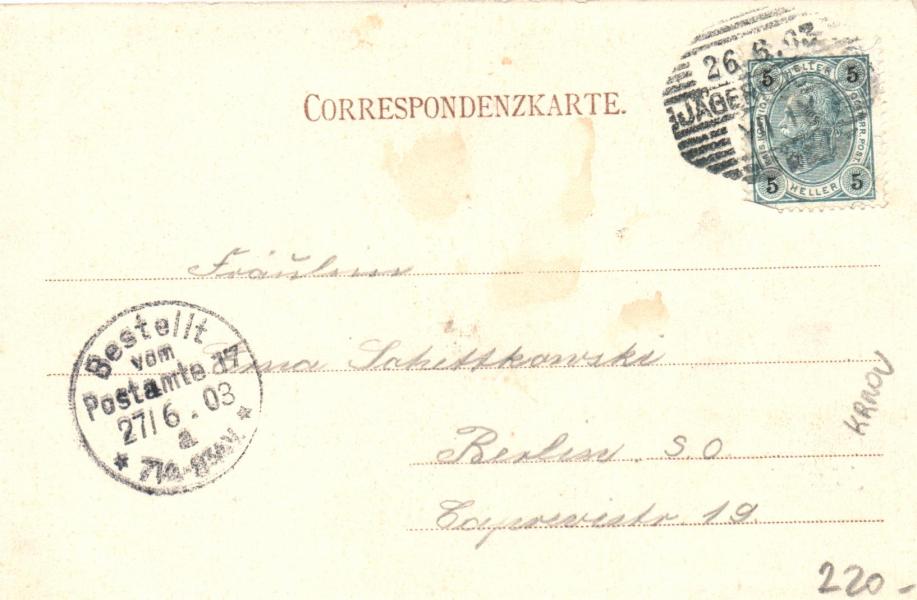 CORRESPONDENZKARTE.
26.6.03
JÄGER
5 HELLER 5
5 HELLER 5
Fräulein
Anna Schittkowski
Berlin S.O
Caprivistr. 19.
Bestellt
vom
Postamte 17
27/6.03
a
KRNOV
220-